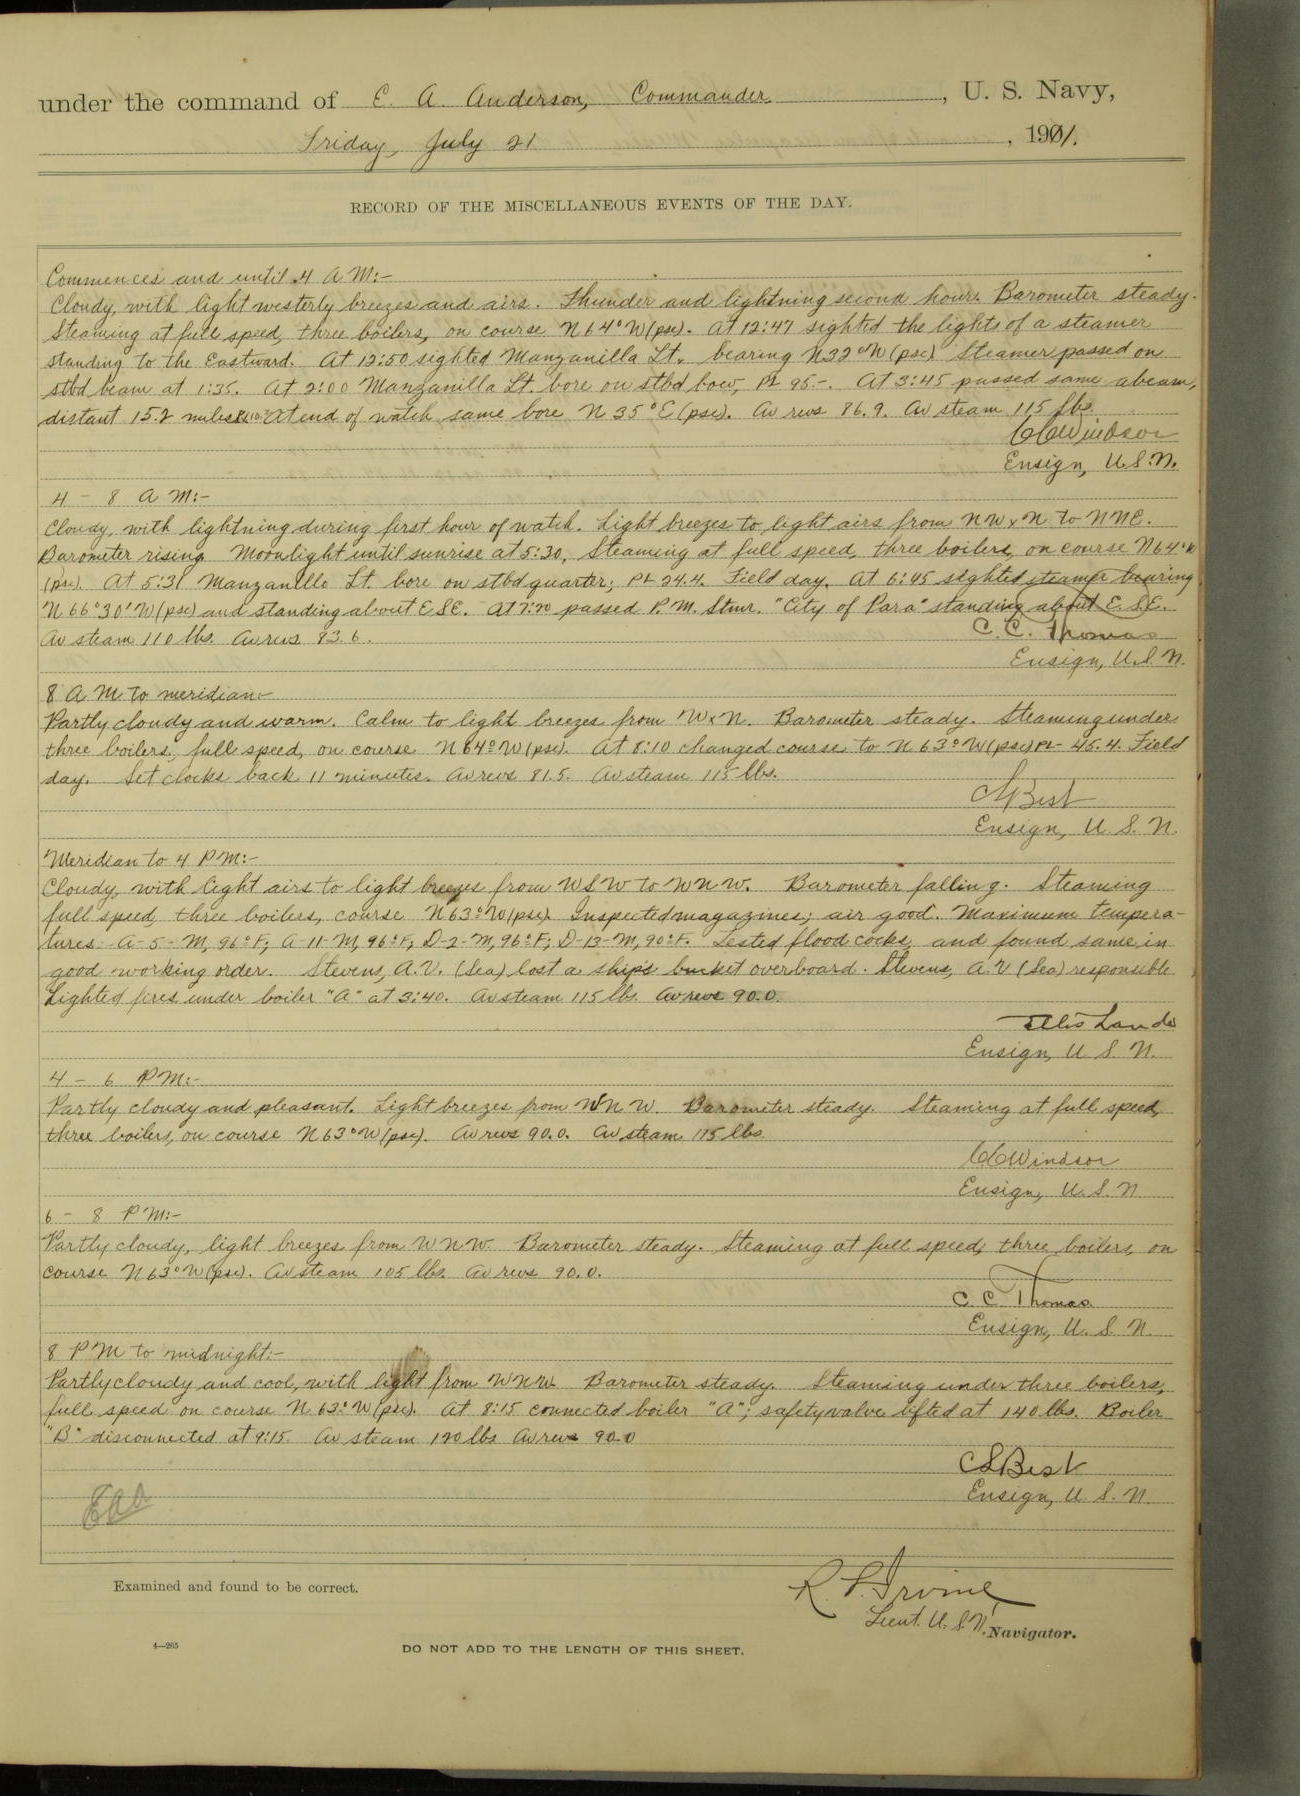 under the command of E. A. Anderson, Commander , U. S. Navy,
Friday, July 21 , 1911.
RECORD OF THE MISCELLANEOUS EVENTS OF THE DAY.
Commences and until 4 A M:-
Cloudy, with light westerly breezes and airs. Thunder and lightning second hour. Barometer steady.
Steaming at full speed, three boilers, on course N 64° W (psc). At 12:47 sighted the lights of a steamer
standing to the Eastward. At 12:50 sighted Manzanilla Lt. bearing N 32° W (psc) Steamer passed on
stbd beam at 1:35. At 2:00 Manzanilla Lt. bore on stbd bow, PL 95.-. At 3:45 passed same abeam,
distant 15.2 miles. At end of watch same bore N 35° E (psc). Av revs 86.9. Av steam 115 lbs.
CC Windsor
Ensign, U.S.N.
4 - 8 A M:-
Cloudy, with lightning during first hour of watch. Light breezes to light airs from NW x N to NNE.
Barometer rising. Moonlight until sunrise at 5:30, Steaming at full speed, three boilers, on course N 64° W
(psc). At 5:31 Manzanillo Lt. bore on stbd quarter; PL 24.4. Field day. At 6:45 sighted steamer bearing
N 66° 30' W (psc) and standing about ESE. At 7:20 passed P.M. Stmr. "City of Para" standing about E.S.E.
Av steam 110 lbs. Av revs 83.6.
C. C. Thomas
Ensign, U.S.N.
8 A M to meridian:-
Partly cloudy and warm. Calm to light breezes from W x N. Barometer steady. Steaming under
three boilers, full speed, on course N 64° W (psc). At 8:10 changed course to N 63° W (psc) PL- 45.4. Field
day. Set clocks back 11 minutes. Av revs 81.5. Av steam 115 lbs.
CS Best
Ensign, U. S. N.
Meridian to 4 P M:-
Cloudy, with light airs to light breezes from WSW to WNW. Barometer falling. Steaming
full speed, three boilers, course N 63° W (psc). Inspected magazines; air good. Maximum tempera-
tures - A-5-M, 96° F; A-11-M, 96° F; D-2-M, 96° F; D-13-M, 90° F. Tested flood cocks, and found same in
good working order. Stevens, A.V. (Sea) lost a ship's bucket overboard. Stevens, A.V (Sea) responsible
Lighted fires under boiler "A" at 3:40. Av steam 115 lbs. Av revs 90.0.
Ellis Lando
Ensign, U. S. N.
4 - 6 P M:-
Partly cloudy and pleasant. Light breezes from WNW. Barometer steady. Steaming at full speed,
three boilers, on course N 63° W (psc). Av revs 90.0. Av steam 115 lbs.
CC Windsor
Ensign, U. S. N
6 - 8 P M:-
Partly cloudy, light breezes from WNW. Barometer steady. Steaming at full speed, three boilers, on
course N 63° W (psc). Av steam 105 lbs. Av revs 90.0.
C. C. Thomas.
Ensign, U. S. N.
8 P M to midnight:-
Partly cloudy and cool, with light from WNW. Barometer steady. Steaming under three boilers,
full speed on course N 63° W (psc). At 8:15 connected boiler "A"; safety valve lifted at 140 lbs. Boiler
"B" disconnected at 9:15. Av steam 120 lbs Av revs 90.0
CS Best
Ensign, U. S. N.
EAA
Examined and found to be correct.
R. P. Irvine
Lieut. U. S. N., Navigator.
4—265
DO NOT ADD TO THE LENGTH OF THIS SHEET.